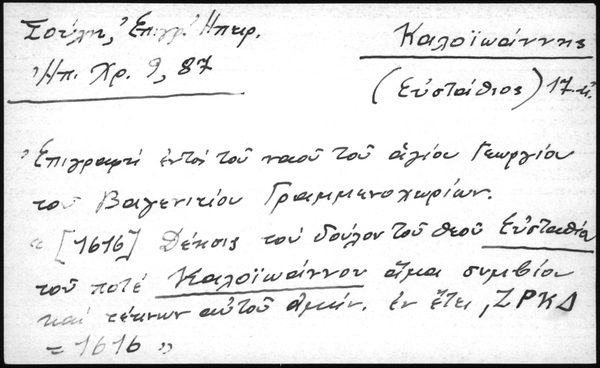 Σούλη, Ἐπιγρ. Ἠπειρ.
Ἠπ. Χρ. 9, 87
Καλοϊωάννης
(Εὐστάθιος) 17 αἰ.
Ἐπιγραφή ἐντός τοῦ ναοῦ τοῦ ἁγίου Γεωργίου
τοῦ Βαγενιτίου Γραμμενοχωρίων.
"[1616] Δέησις τοῦ δούλου τοῦ θεοῦ Εὐσταθίου
τοῦ ποτέ Καλοϊωάννου ἅμα συμβίου
καί τέκνων αὐτοῦ ἀμήν. ἐν ἔτει ,ΖΡΚΔ
= 1616"